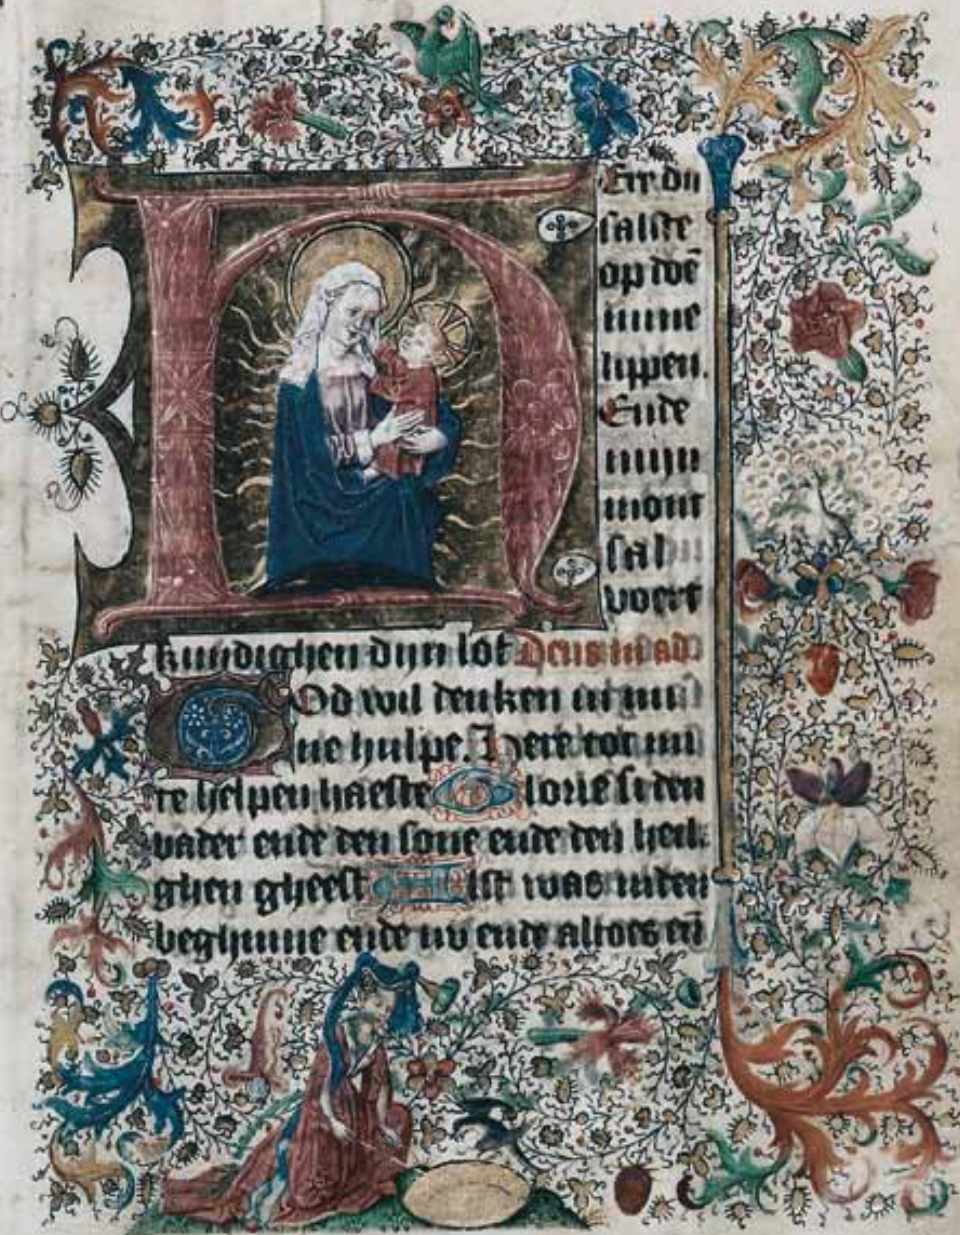 HEre du
salste
op doē
mine
lippen.
Ende
mijn
mont
sal
voert
kundighen dijn lof Deus in ad
God wil denken in mi
ne hulpe. Here tot mi
te helpen haeste Glorie si den
vader ende den sone ende den heili
ghen gheest Alst was inden
beghinne ende nv ende altoes eñ